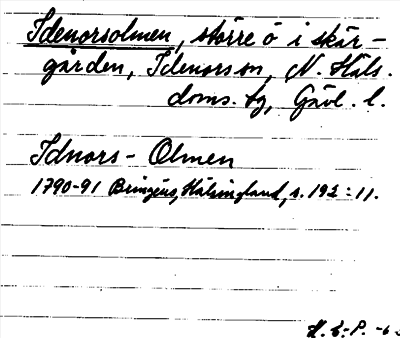 Idenorsolmen, större ö i skär-
gården, Idenors sn, N. Häls.
doms. bg, Gävl. l.
Idnors-Olmen
1790-91 Bringéus, Hälsingland, s. 192:11.
H. L-P. -6